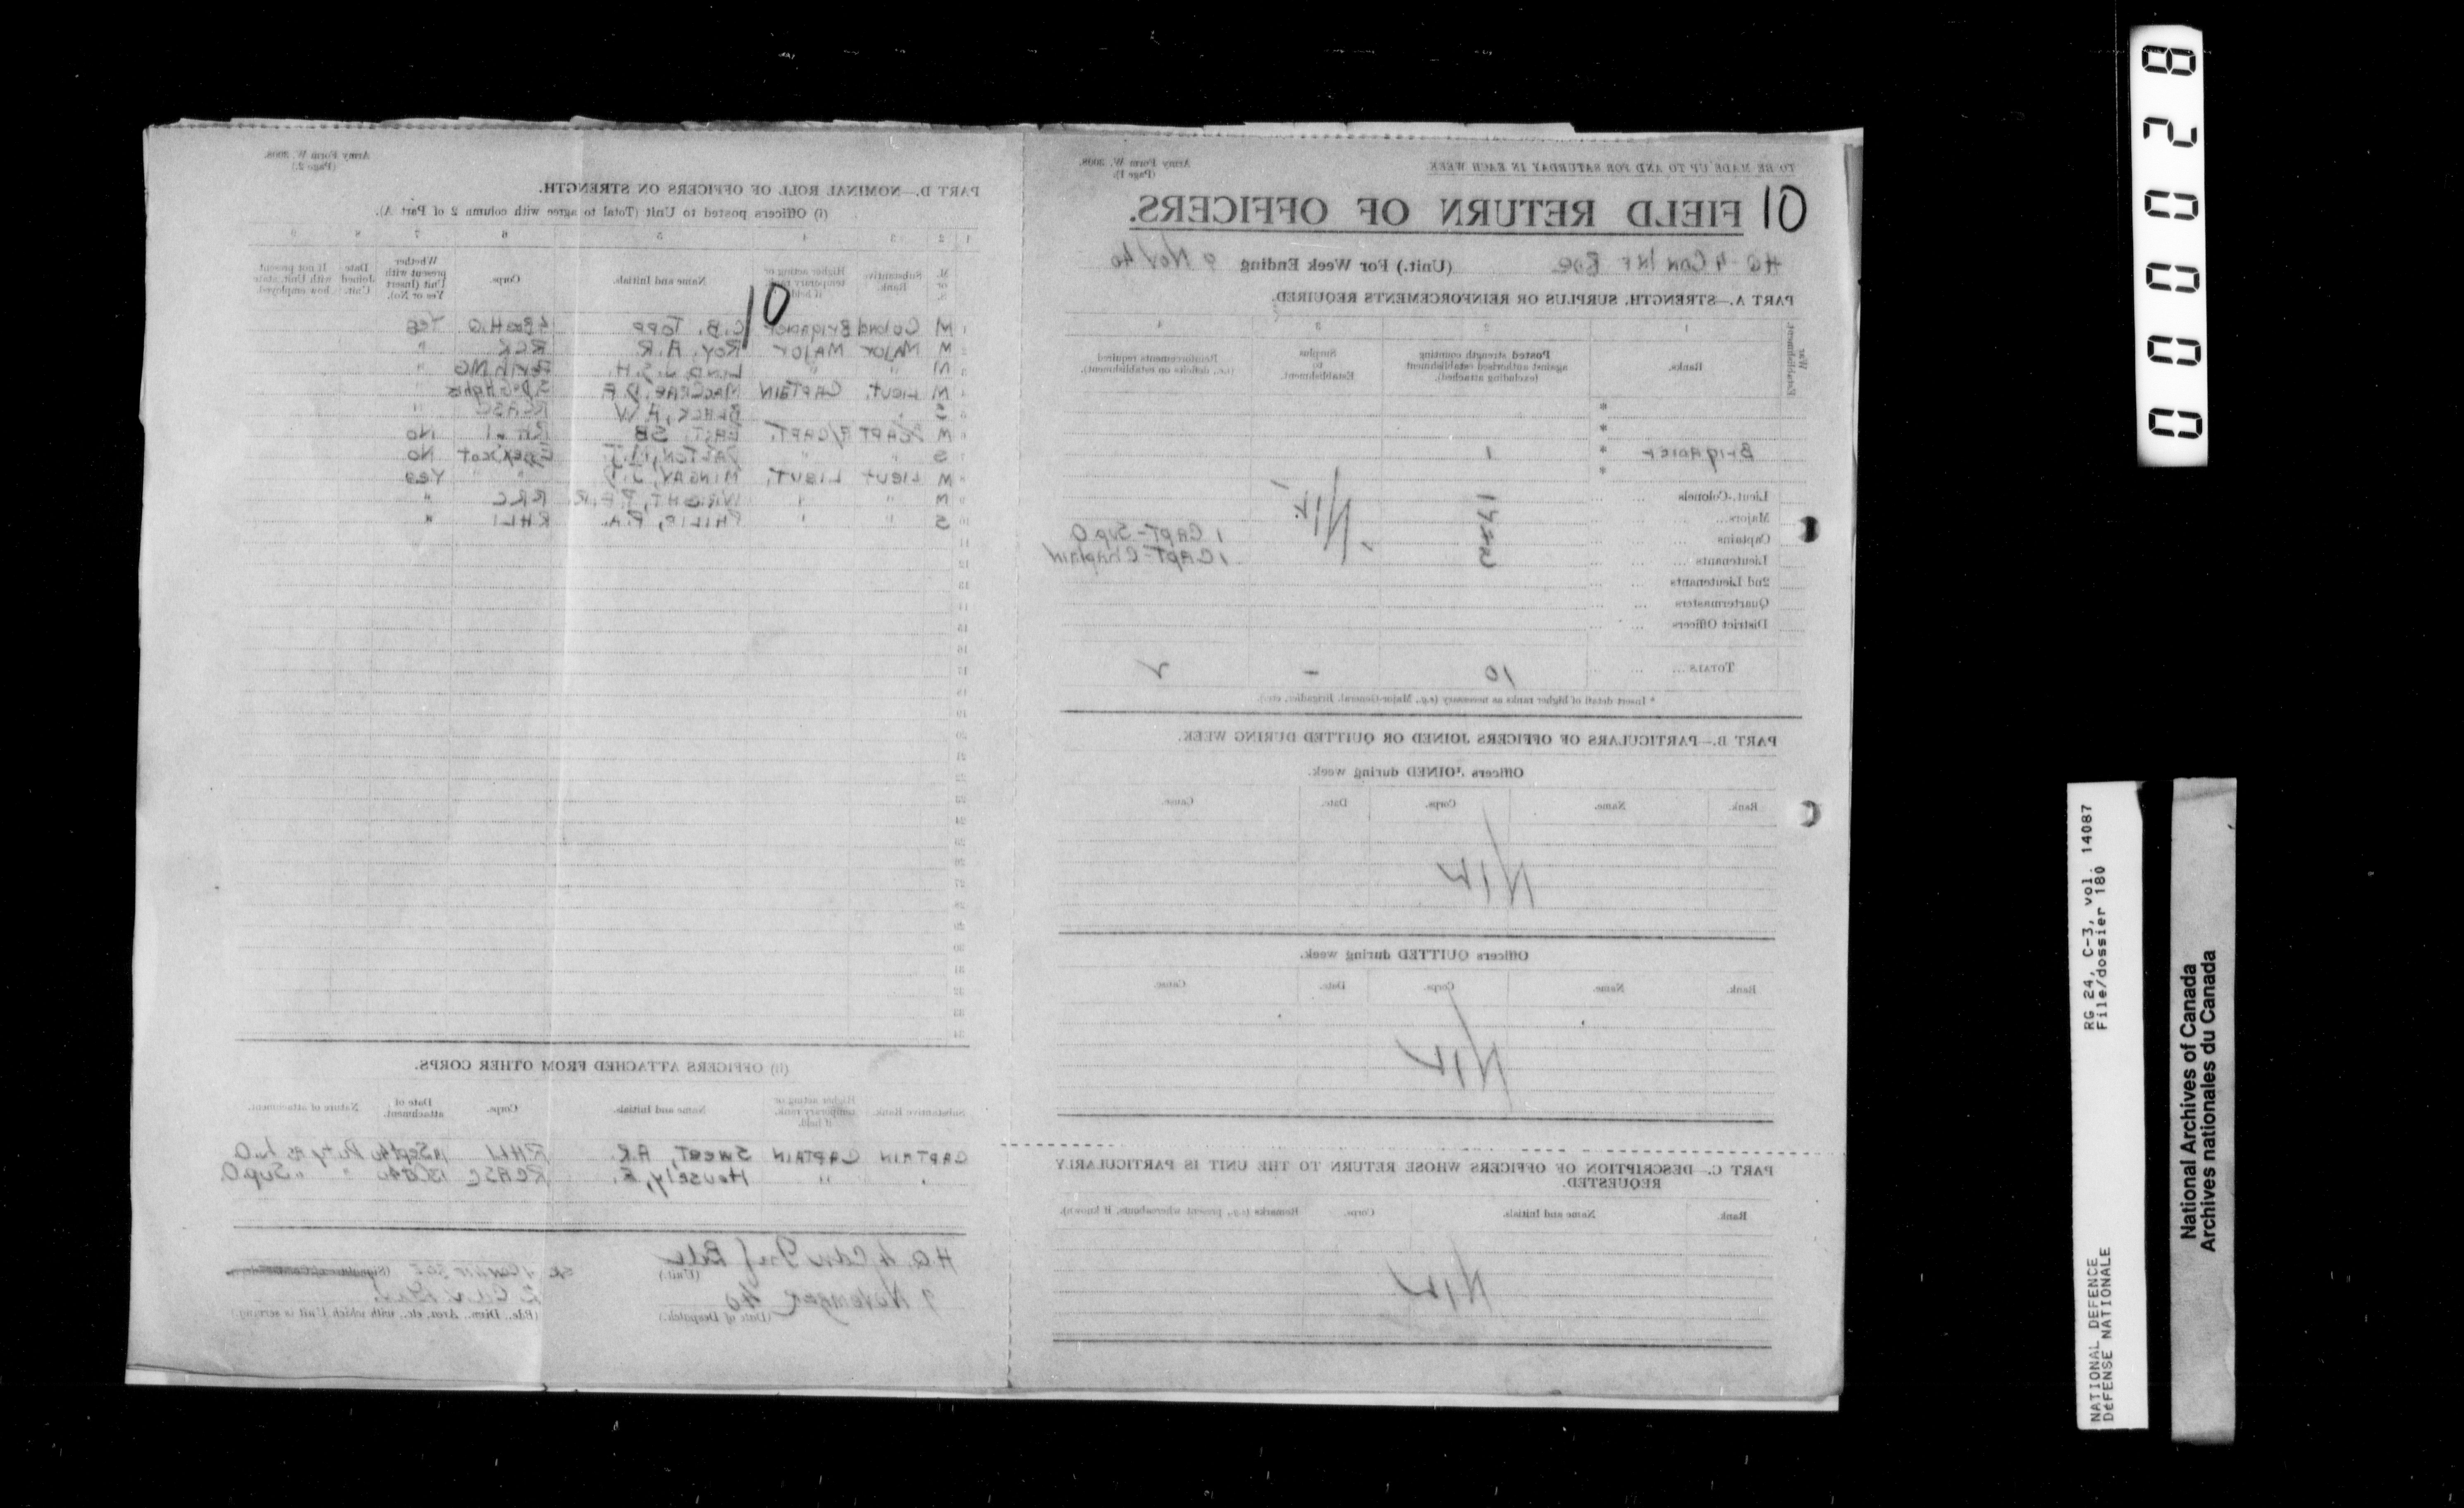 TO BE MADE UP TO AND FOR SATURDAY IN EACH WEEK
Army Form W. 3008.
(Page 1).
10
FIELD RETURN OF OFFICERS.
HQ 4 Cdn Inf Bde (Unit.) For Week Ending 9 Nov 40
PART A.—STRENGTH, SURPLUS OR REINFORCEMENTS REQUIRED.
War Establishment.
1 2 3 4
Ranks.
Posted strength counting against authorised establishment (excluding attached).
Surplus to Establishment.
Reinforcements required (i.e., deficits on establishment).
*
*
Brigadier * 1
*
Lieut.-Colonels
Majors
Captains 1 Capt-Sup O
Lieutenants 1 Capt-Chaplain
Nil
2nd Lieutenants
Quartermasters
District Officers
TOTALS 10 - 2
* Insert detail of higher ranks as necessary (e.g., Major-General, Brigadier, etc.).
PART B.—PARTICULARS OF OFFICERS JOINED OR QUITTED DURING WEEK.
Officers JOINED during week.
Rank. Name. Corps. Date. Cause.
Nil
Officers QUITTED during week.
Rank. Name. Corps. Date. Cause.
Nil
PART C.—DESCRIPTION OF OFFICERS WHOSE RETURN TO THE UNIT IS PARTICULARLY
REQUESTED.
Rank Name and Initials. Corps. Remarks (e.g., present whereabouts, if known).
Nil
Army Form W. 3008.
(Page 2.)
PART D.—NOMINAL ROLL OF OFFICERS ON STRENGTH.
(i) Officers posted to Unit (Total to agree with column 2 of Part A).
1 2 3 4 5 6 7 8 9
M. or S.
Substantive Rank.
Higher acting or temporary rank if held.
Name and Initials.
Corps.
Whether present with Unit (Insert Yes or No).
Date Joined Unit.
If not present with Unit, state how employed.
10
1 M Colonel Brigadier C.B. Topp Yes
2 M Major Major Roy, A.R. "
3 M " " Lind, J.S.H. "
4 M Lieut. Captain MacCrae, D.F. "
5 S " " Black, A.W RCASC "
6 M Capt East, SB No
7 S " " Dalton, No
8 M Lieut Lieut. Mingay, J.D. Yes
9 M " " Wright, P.E.R. RRC "
10 S " " Philip, R.A. RHLI "
11
12
13
14
15
16
17
18
19
20
21
22
23
24
25
26
27
28
29
30
31
32
33
34
(ii) OFFICERS ATTACHED FROM OTHER CORPS.
Substantive Rank.
Higher acting or temporary rank, if held.
Name and Initials.
Corps.
Date of attachment.
Nature of attachment.
Captain Captain Sweet, A.R. RHLI Sept 40 Duty as L.O.
" " Housely, E. RCASC 13 Oct 40 " " Sup O.
H.Q. 4 Cdn Inf Bde
(Unit.)
9 November 40
(Date of Despatch.)
2 Cdn Div.
(Bde., Divn., Area, etc., with which Unit is serving.)
000028
RG 24, C-3, vol. 14087
File/dossier 180
NATIONAL DEFENCE
DÉFENSE NATIONALE
National Archives of Canada
Archives nationales du Canada